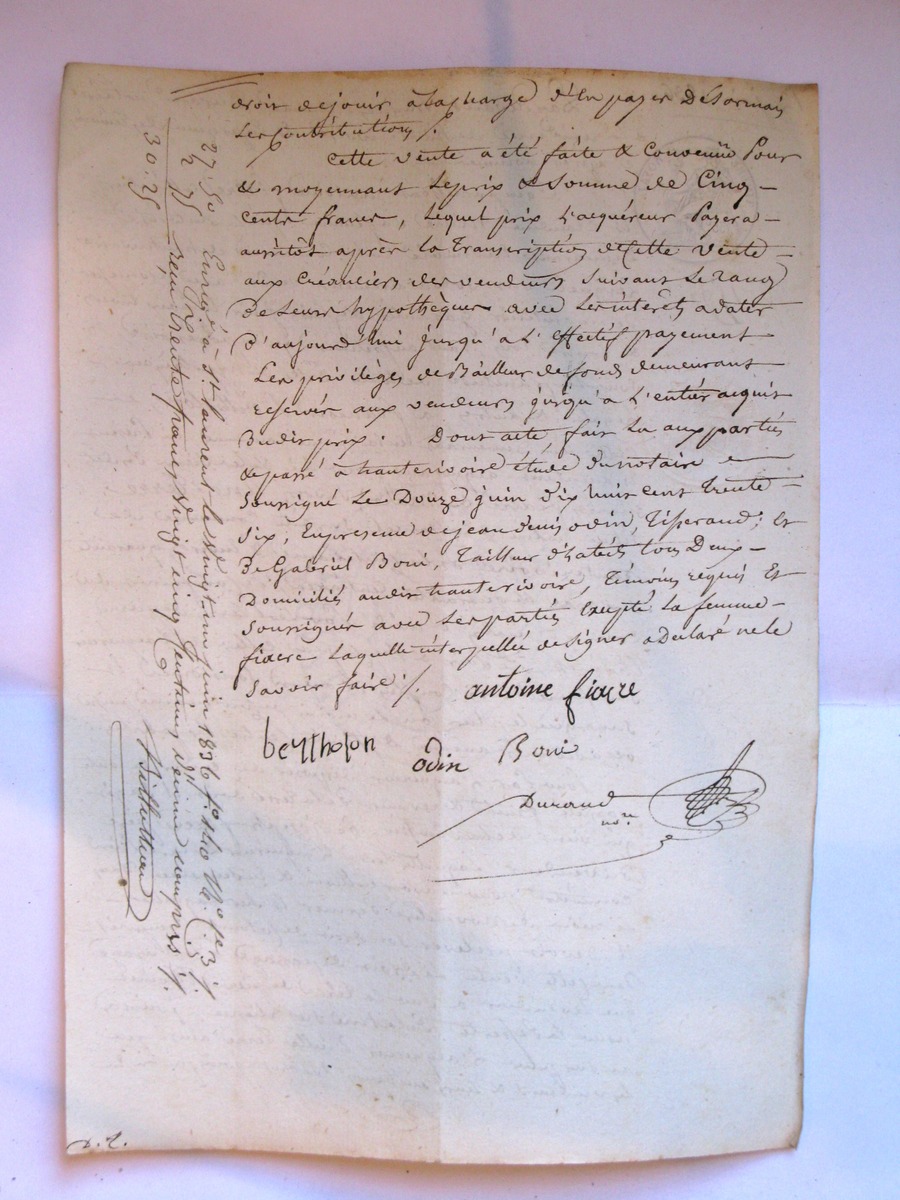 droit de jouir à la charge d'en payer Désormais
Les Contributions /.
Cette vente a été faite & Convenue Pour
& moyennant Le prix & Somme de Cinq -
Cents francs, Lequel prix L'acquéreur Payera -
aussitôt après la Transcription de Cette Vente -
aux Créanciers des vendeurs Suivant Le rang
De Leurs hypothèques avec Les intérêts a dater
D'aujourd'hui jusqu'à L'Effectif payement
Les privilèges de Bailleur de fonds demeurant
reservés aux vendeurs jusqu'à L'entier acquit
Dudit prix. Dont acte, fait Lu aux parties
& passé à hauterivoire étude du notaire -
Soussigné Le Douze juin Dix huit cent Trente -
Six, En presence de jean denis odin, Tisserand, Et
De Gabriel Boni, Tailleur d'habits tous Deux -
Domiciliés audit hauterivoire, Témoins requis Et
Soussignés avec Les parties Excepté La femme -
fiacre Laquelle interpellée de signer a Déclaré ne le
Savoir faire /.
antoine fiacre
beytholon
odin Boni
Durand
nore
27. 50
2 75
30. 25
Enregé à St Laurent le vingt un juin 1836 fo 140 Vo Ce. 3 /.
reçu trente francs vingt cinq Centimes Dixime compris /.
D. L.